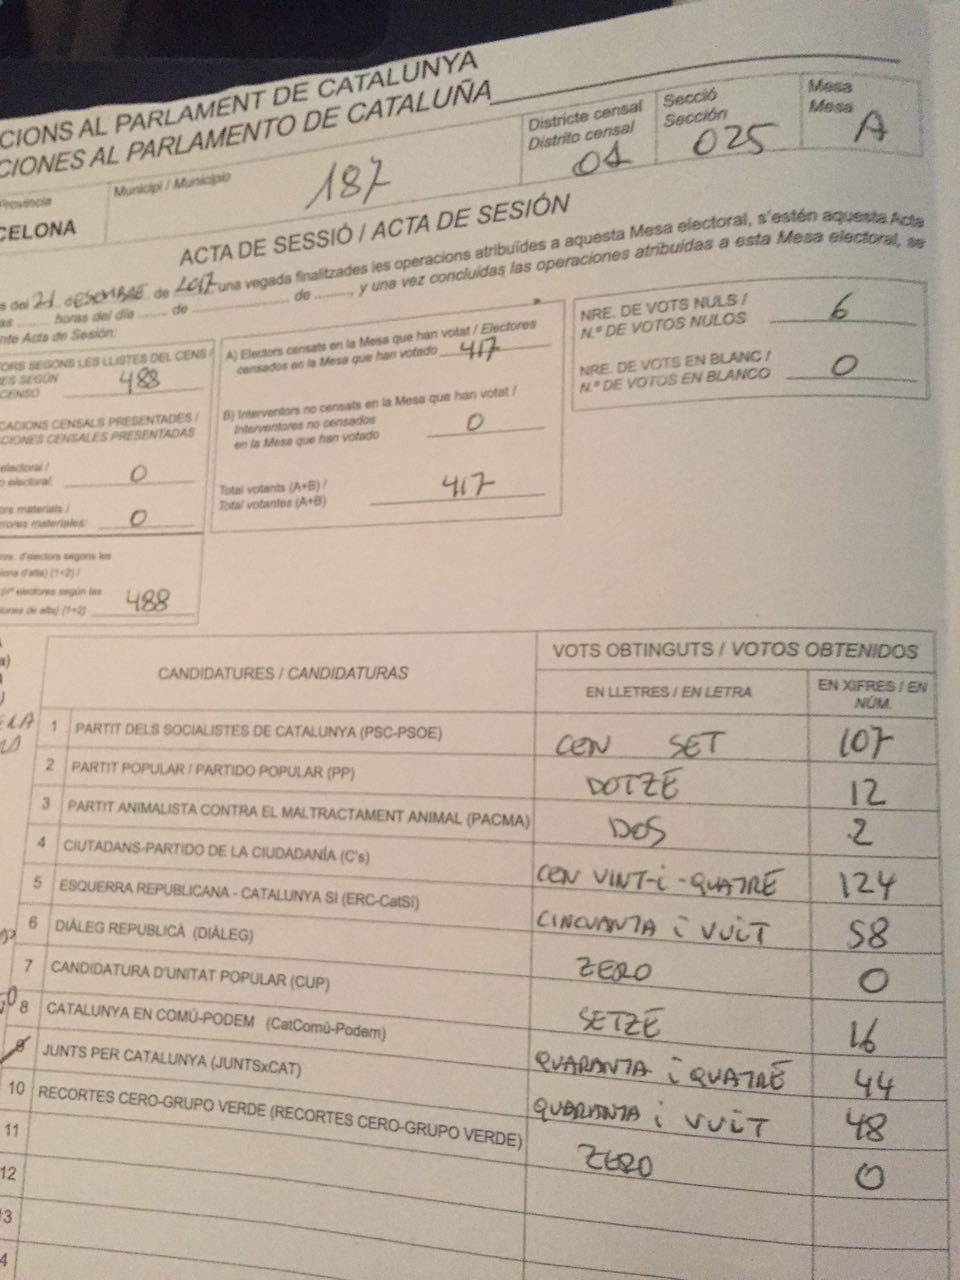 CIONS AL PARLAMENT DE CATALUNYA
CIONES AL PARLAMENTO DE CATALUÑA
Provincia
CELONA
Municipi / Municipio
187
Districte censal
Distrito censal
01
Secció
Sección
025
Mesa
Mesa
A
ACTA DE SESSIÓ / ACTA DE SESIÓN
s del 21 de de 2017 una vegada finalitzades les operacions atribuïdes a aquesta Mesa electoral, s'estén aquesta Acta
as ...... horas del día ...... de .................. de ........., y una vez concluidas las operaciones atribuidas a esta Mesa electoral, se
nte Acta de Sesión:
ORS SEGONS LES LLISTES DEL CENS /
ES SEGÚN
CENSO 488
CACIONS CENSALS PRESENTADES /
CIONES CENSALES PRESENTADAS
electoral /
o electoral: 0
ors materials /
rrores materiales: 0
nre. d'electors segons les
ions d'alta) (1+2) /
(nº electores según las
iones de alta) (1+2) 488
A) Electors censats en la Mesa que han votat / Electores
censados en la Mesa que han votado 417
B) Interventors no censats en la Mesa que han votat /
Interventores no censados
en la Mesa que han votado 0
Total votants (A+B) /
Total votantes (A+B) 417
NRE. DE VOTS NULS /
N.º DE VOTOS NULOS 6
NRE. DE VOTS EN BLANC /
N.º DE VOTOS EN BLANCO 0
CANDIDATURES / CANDIDATURAS
VOTS OBTINGUTS / VOTOS OBTENIDOS
EN LLETRES / EN LETRA
EN XIFRES / EN
NÚM.
1 PARTIT DELS SOCIALISTES DE CATALUNYA (PSC-PSOE) CEN SET 107
2 PARTIT POPULAR / PARTIDO POPULAR (PP) DOTZE 12
3 PARTIT ANIMALISTA CONTRA EL MALTRACTAMENT ANIMAL (PACMA) DOS 2
4 CIUTADANS-PARTIDO DE LA CIUDADANÍA (C's) CEN VINT-i-QUATRE 124
5 ESQUERRA REPUBLICANA - CATALUNYA SI (ERC-CatSí) CINCUANTA i VUIT 58
6 DIÀLEG REPUBLICÀ (DIÀLEG) ZERO 0
7 CANDIDATURA D'UNITAT POPULAR (CUP) SETZE 16
8 CATALUNYA EN COMÚ-PODEM (CatComú-Podem) QUARANTA i QUATRE 44
9 JUNTS PER CATALUNYA (JUNTSxCAT) QUARANTA i VUIT 48
10 RECORTES CERO-GRUPO VERDE (RECORTES CERO-GRUPO VERDE) ZERO 0
11
12
13
4